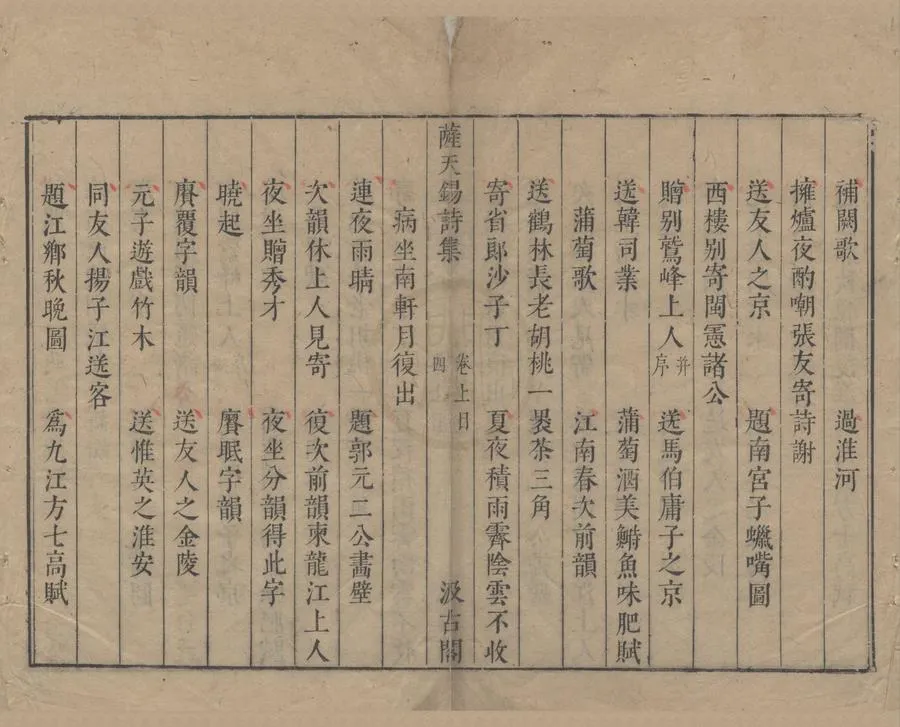 補闕歌　過淮河
擁爐夜酌嘲張友寄詩謝
送友人之京　題南宮子蠟嘴圖
西樓别寄閩憲諸公
贈别鷲峰上人并序　送馬伯庸子之京
送韓司業　蒲萄酒美鰣魚味肥賦
蒲萄歌　江南春次前韻
送鶴林長老胡桃一褁茶三角
寄省郎沙子丁　夏夜積雨霽陰雲不收
病坐南軒月復出
薩天錫詩集　卷上目　四　汲古閣
連夜雨晴　題郭元二公畵壁
次韻休上人見寄　復次前韻柬龍江上人
夜坐贈秀才　夜坐分韻得此字
曉起　賡眠字韻
賡覆字韻　送友人之金陵
元子遊戲竹木　送惟英之淮安
同友人揚子江送客
題江鄉秋晚圖　爲九江方七高賦